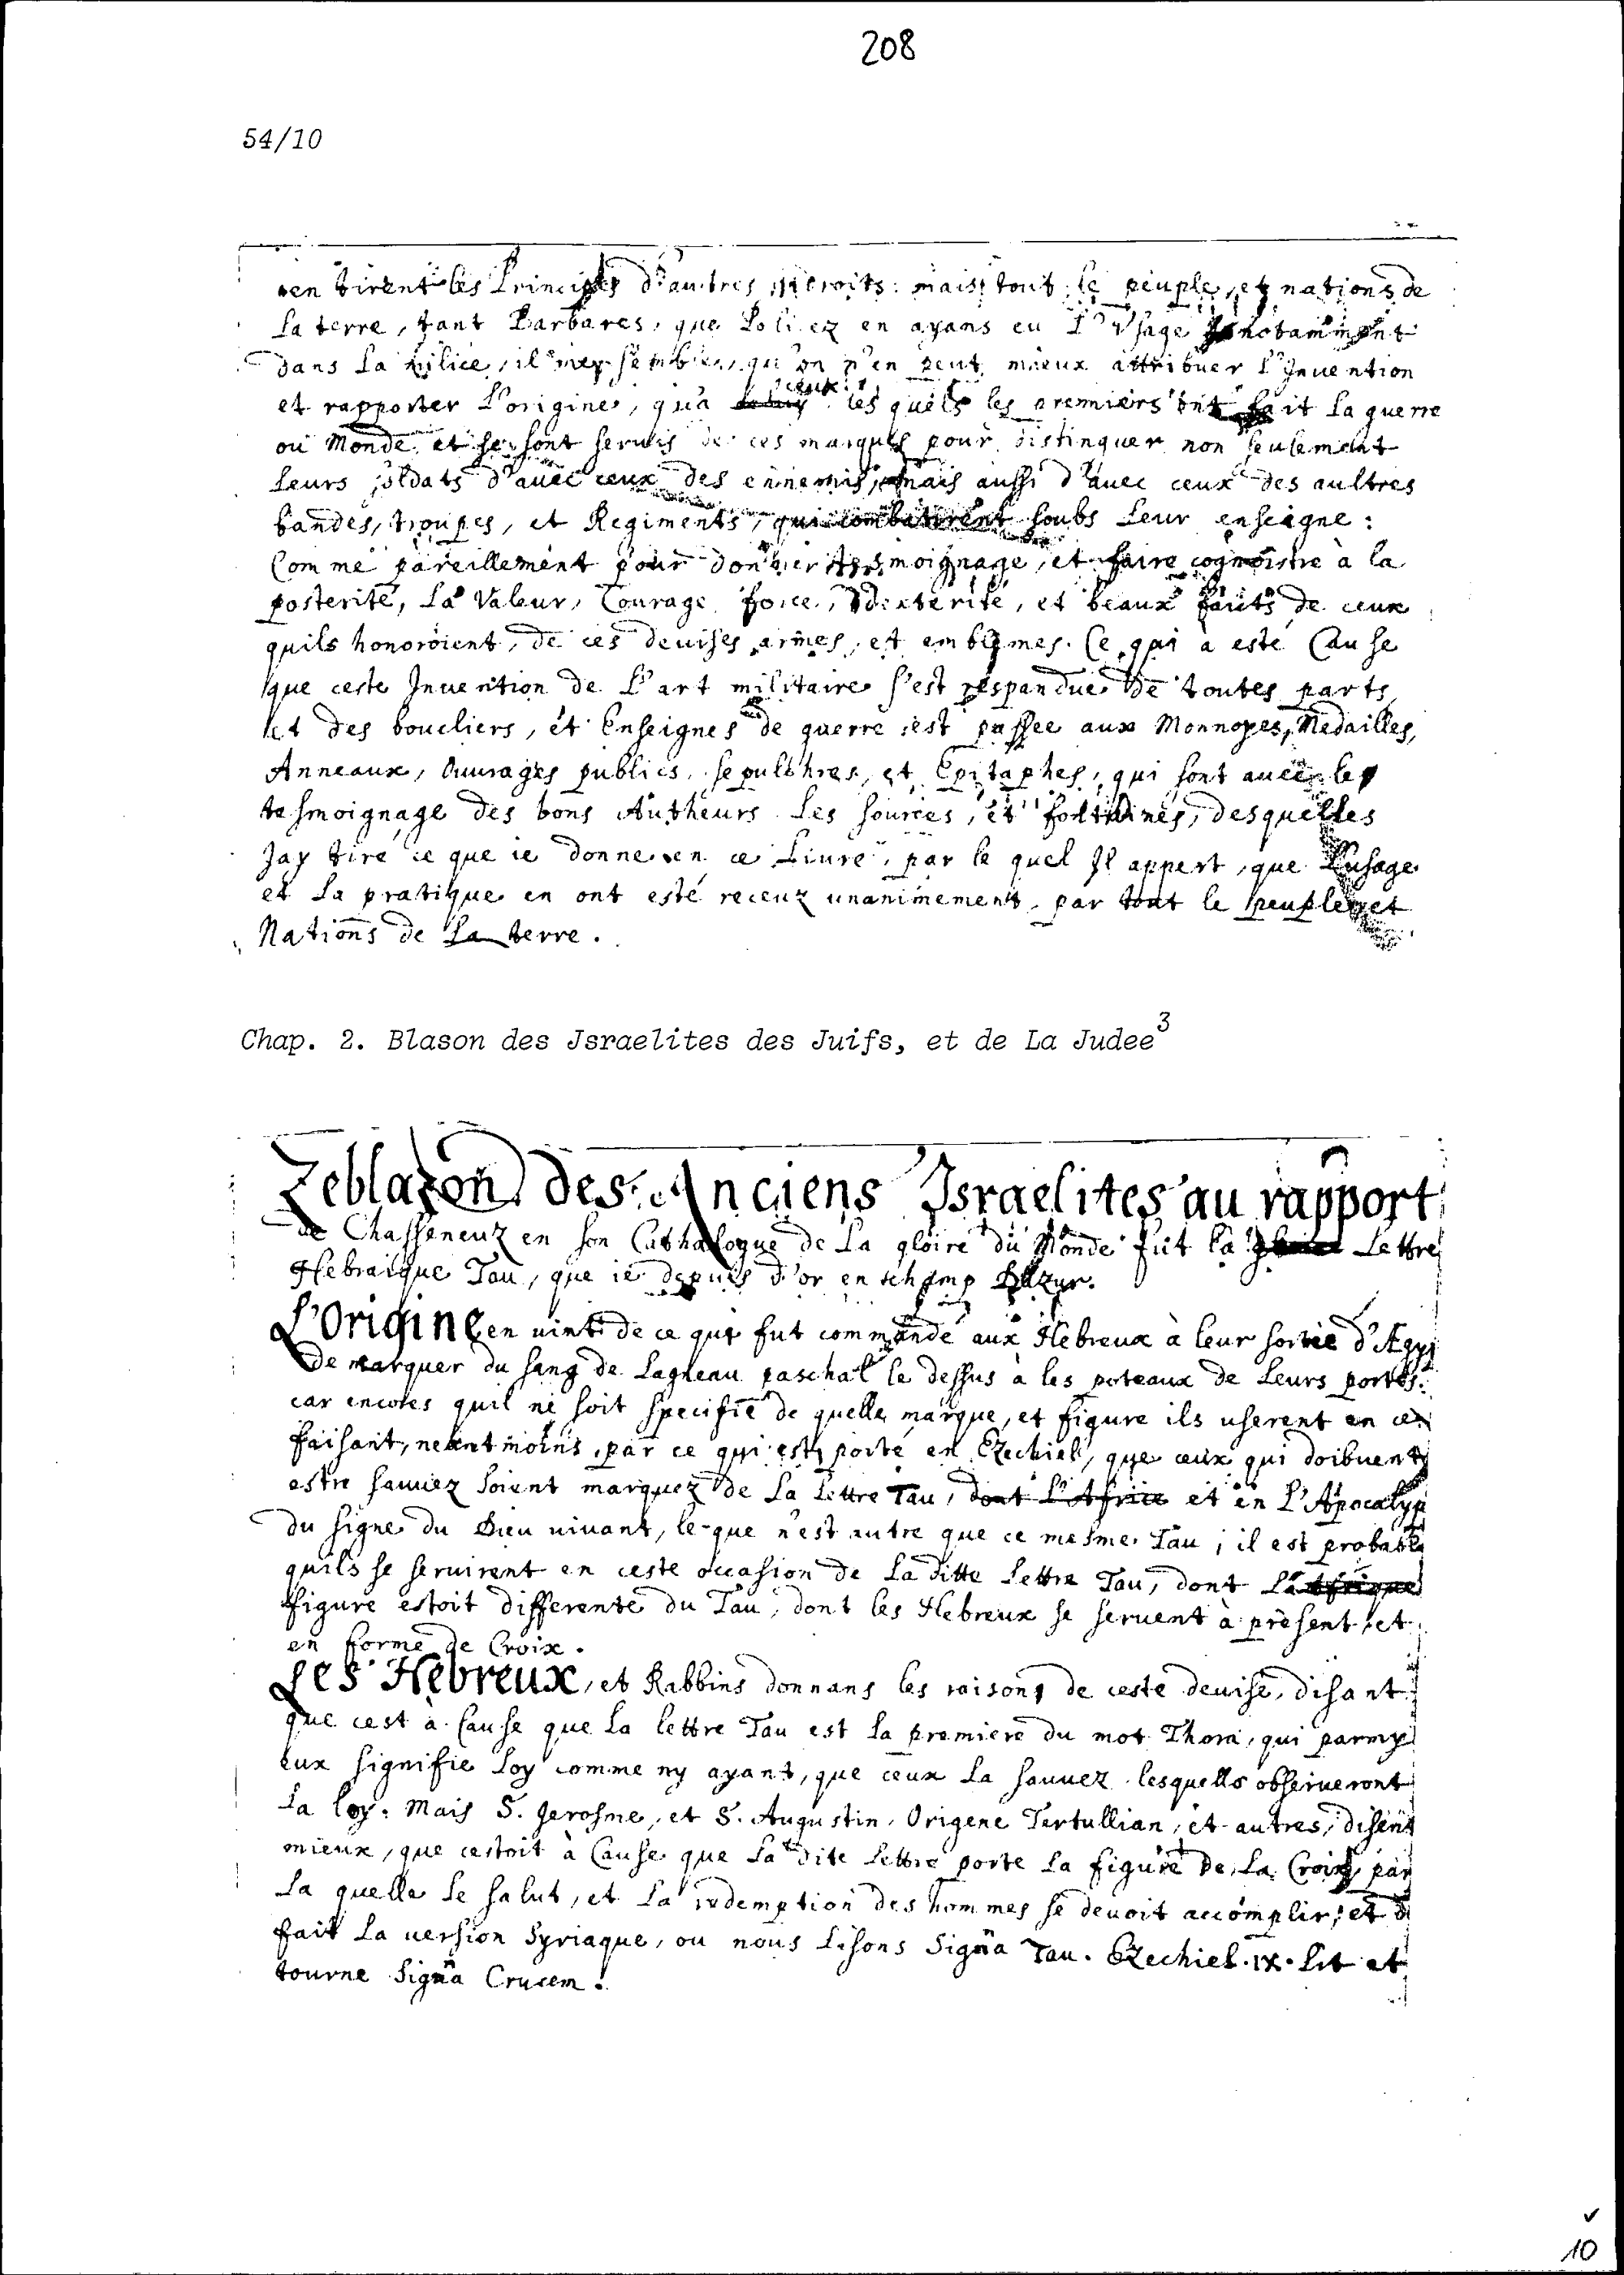 208
54/10
en tirent les Principes d'autres endroits: mais tout le peuple, et nations de
la terre, tant Barbares, que Poliez en ayans eu L'Vsage notamment
dans la milice, il mey semble, qu'on n'en peut mieux attribuer l'Jnuention
et rapporter L'origine, qu'a ceux les quels les premiers ont fait la guerre
ou Monde et se sont seruis de ces marques pour distinguer non seulement
leurs soldats d'auec ceux des ennemis, mais aussi d'auec ceux des aultres
bandes, troupes, et Regiments, qui combatirent soubs leur enseigne:
Comme pareillement pour donner tesmoignage, et faire cognoistre à la
posterité, La Valeur, Courage, force, dexterité, et beaux faits de ceux
quils honoroient, de ces deuises armes, et emblemes. Ce qui a esté Cause
que ceste Jnuention de L'art militaire s'est respandue de toutes parts
et des boucliers, et Enseignes de guerre est passee aux Monnoyes, Medailles,
Anneaux, Ouurages publics, sepulchres, et Epitaphes, qui sont auec le
tesmoignage des bons Autheurs les sources, et fontaines, desquelles
Jay tiré ce que ie donne en ce Liure, par le quel Jl appert, que L'usage
et la pratique en ont esté receuz unanimement par tout le peuple et
Nations de La terre.
Chap. 2. Blason des Jsraelites des Juifs, et de La Judee3
Leblazon des Anciens Jsraelites au rapport
de Chasseneuz en son Cathalogue de La gloire du Monde fut la Lettre
Hebraique Tau, que ie depuis d'or en champ D'azur.
L'Origine en uint de ce qui fut commandé aux Hebreux à leur sortie d'Ægyp
De marquer du sang de Lagneau paschal le dessus à les poteaux de Leurs portes:
car encores quil ne soit specifié de quelle marque, et figure ils userent en ce
faisant, neantmoins, par ce qui est porté en Ezechiel, que ceux qui doibuent
estre sauuez soient marquez de La Lettre Tau, dont L'Africe et en L'Apocalyp
du signe du Dieu uiuant, le-que n'est autre que ce mesme Tau; il est probable
quils se seruirent en ceste occasion de La ditte Lettre Tau, dont La
figure estoit differente du Tau, dont les Hebreux se seruent à present, et
en forme de Croix.
Les Hebreux, et Rabbins donnans les raisons de ceste deuise, disant
que cest à Cause que La lettre Tau est la premiere du mot Thora, qui parmy
eux signifie Loy comme ny ayant, que ceux La sauuez lesquells obserueront
La loy. Mais S. Jerosme, et S. Augustin, Origene Tertullian, et autres, disent
mieux, que cestoit à Cause que La dite Lettre porte La figure de La Croix par
La quelle Le salut, et La redemption des hommes se deuoit accomplir; et d
fait La uersion Syriaque, ou nous Lisons Signa Tau. Ezechiel. ix. Lit et
tourne Signa Crucem.
10